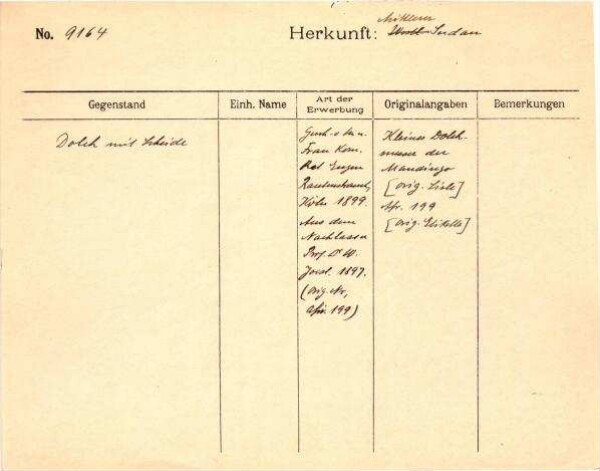 No. 9164
Herkunft: Mittlerer
West-Sudan
Gegenstand
Einh. Name
Art der
Erwerbung
Originalangaben
Bemerkungen
Dolch mit Scheide
Gesch. v. H. u.
Frau Kom.
Rat Eugen
Rautenstrauch,
Köln 1899.
Aus dem
Nachlasse
Prof. Dr. W.
Joest. 1897.
(orig. Nr.
Afr. 199)
Kleines Dolch-
messer der
Mandingo
[orig. Liste]
Afr. 199
[orig. Etikette]